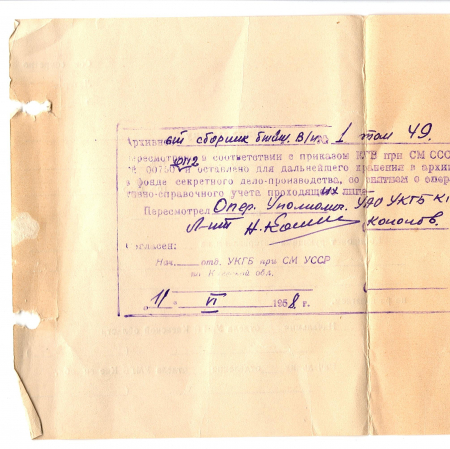 Архивн ый сборник бывш. В/п 1 том 49.
Оп2
пересмотрен в соответствии с приказом КГБ при СМ СССР
№ 00750 и оставлено для дальнейшего хранения в архи
в фонде секретного дело-производства, со снятием с опер
тивно-справочного учета проходящих лиц
Пересмотрел Опер. Уполном. УАО УКГБ К
Л-нт
Согласен:
Нач. отд. УКГБ при СМ УССР
по Киевской обл.
"11" VI 1958 г.